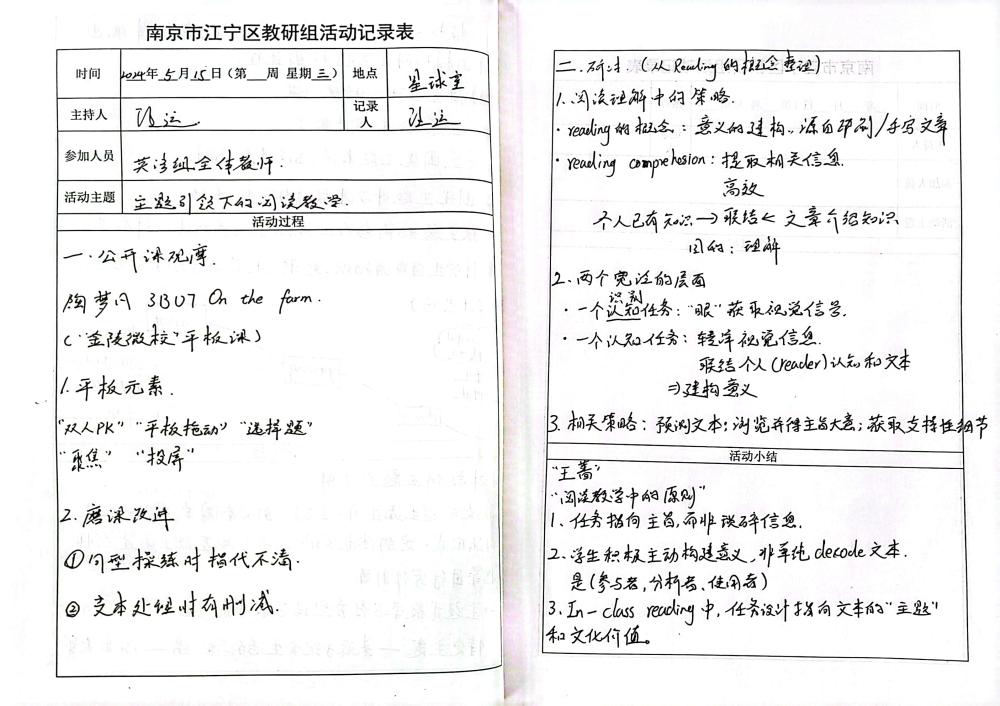 南京市江宁区教研组活动记录表
时间 2024年5月15日(第 周 星期三) 地点 星球室
主持人 记录人
参加人员 英语组全体教师.
活动主题 主题引领下的阅读教学.
活动过程
一.公开课观摩.
陶梦凡 3B U7 On the farm.
("金陵微校"平板课)
1.平板元素.
"双人PK" "平板拖动" "选择题"
"聚焦" "投屏"
2.磨课改进
①句型操练时指代不清.
② 文本处理时有删减.
二.研讨 (从Reading的概念整理)
1.阅读理解中的策略.
·reading的概念:意义的建构,源自印刷/手写文章
·reading comprehesion:提取相关信息.
高效
个人已有知识→联结←文章介绍知识
目的:理解
2.两个宽泛的层面
识别
·一个认知任务:"眼"获取视觉信号.
·一个认知任务:转译视觉信息.
联结个人(reader)认知和文本
⇒建构意义
3.相关策略:预测文本;浏览并得主旨大意;获取支持性细节
活动小结
"王蔷"
"阅读教学中的原则"
1、任务指向主旨,而非琐碎信息.
2.学生积极主动构建意义,非单纯decode文本.
是(参与者,分析者、使用者)
3.In-class reading中,任务设计指向文本的"主题"
和文化价值。